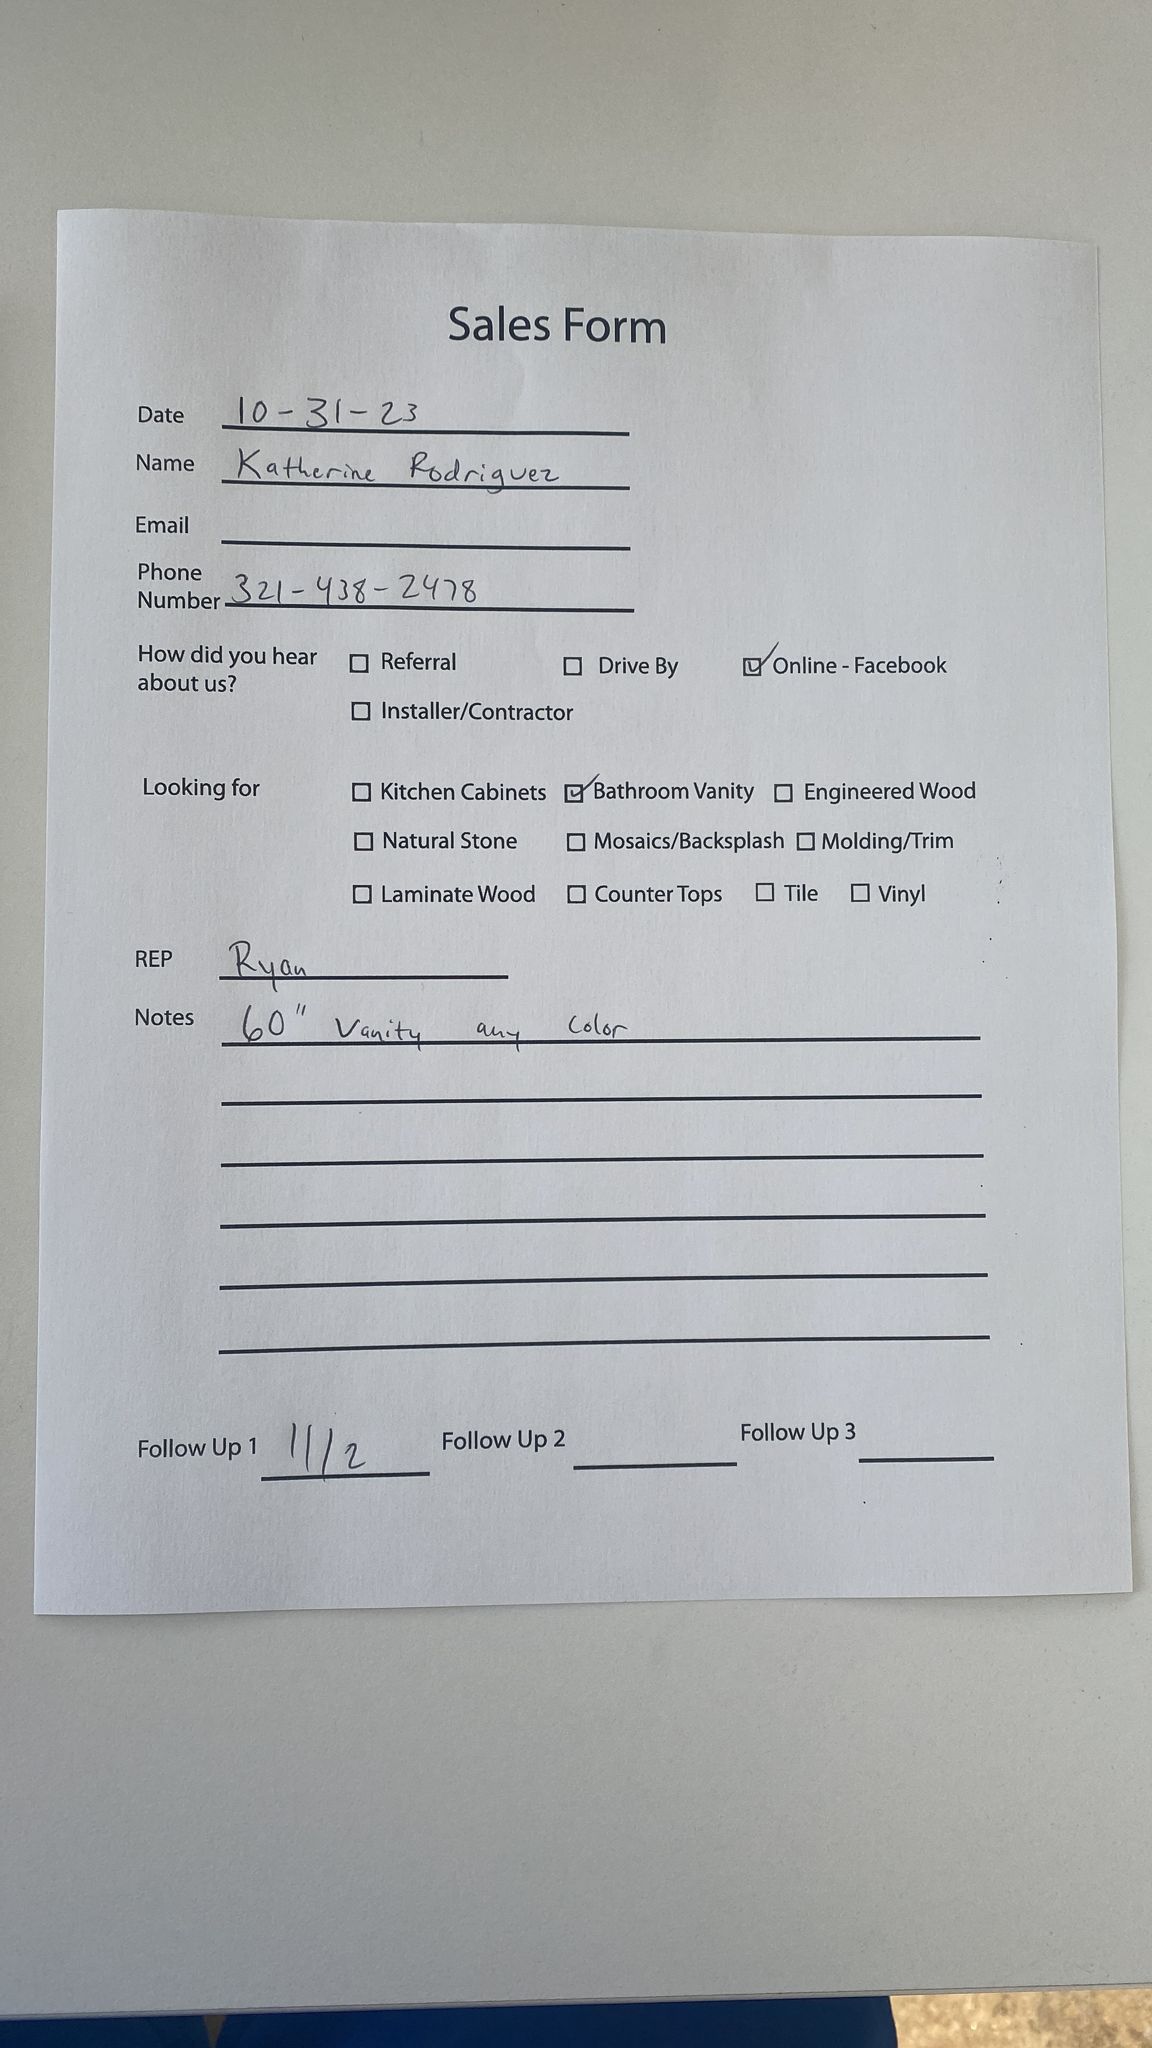 Sales Form
Date 10-31-23
Name Katherine Rodriguez
Email
Phone
Number 321-438-2478
How did you hear
about us?
☐ Referral ☐ Drive By ☑ Online - Facebook
☐ Installer/Contractor
Looking for ☐ Kitchen Cabinets ☑ Bathroom Vanity ☐ Engineered Wood
☐ Natural Stone ☐ Mosaics/Backsplash ☐ Molding/Trim
☐ Laminate Wood ☐ Counter Tops ☐ Tile ☐ Vinyl
REP Ryan
Notes 60" Vanity any Color
Follow Up 1 11/2 Follow Up 2 Follow Up 3